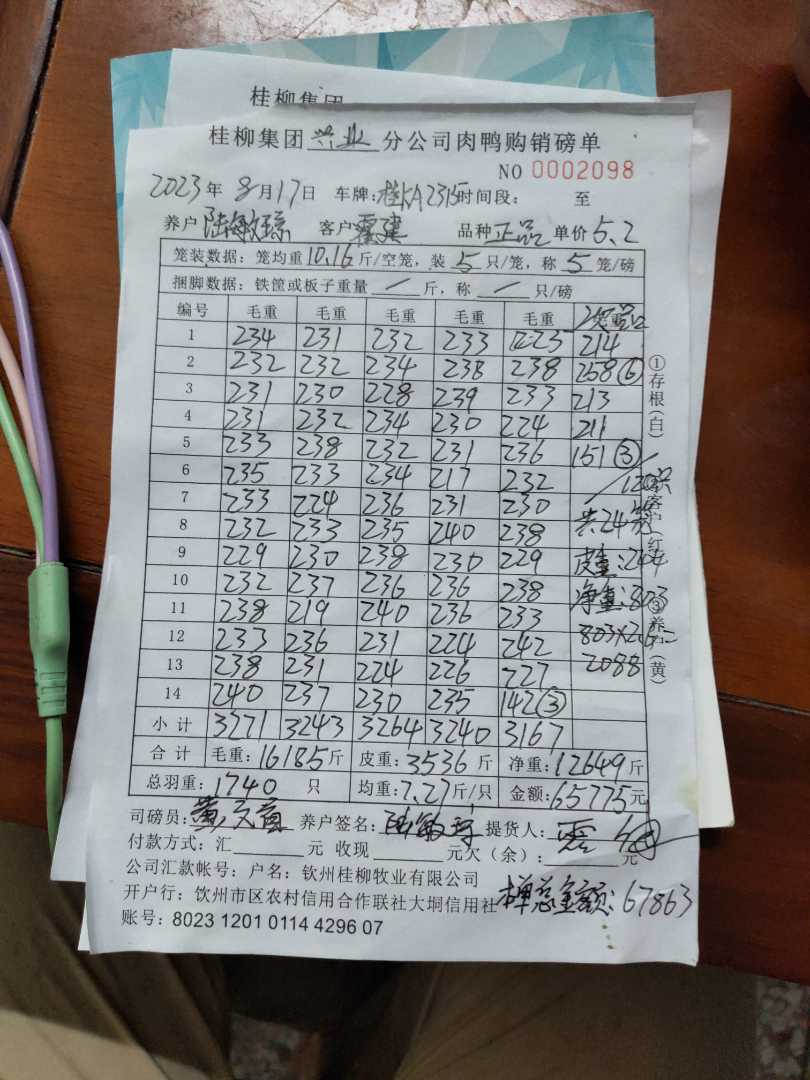 桂柳集团
桂柳集团 兴业 分公司肉鸭购销磅单
NO 0002098
2023年 8月17日 车牌:桂KA2315 时间段: 至
养户 陆敏琼 客户 品种 正品 单价 5.2
笼装数据:笼均重 10.16 斤/空笼,装 5 只/笼,称 5 笼/磅
捆脚数据:铁筐或板子重量 / 斤,称 / 只/磅
编号 毛重 毛重 毛重 毛重 毛重
1 234 231 232 233 225 214
2 232 232 234 238 238 258⑥
3 231 230 228 239 233 213
4 231 232 234 230 224 211
5 233 238 232 231 236 151③
6 235 233 234 217 232
7 233 224 236 231 230
8 232 233 235 240 238 共24笼
9 229 230 238 230 229 皮重:244
10 232 237 236 236 238 净重:803
11 238 219 240 236 233
12 233 236 231 224 242
13 238 231 224 226 227 2088
14 240 237 230 235 142③
小计 3271 3243 3264 3240 3167
合计 毛重:16185斤 皮重:3536斤 净重:12649斤
总羽重:1740 只 均重:7.27斤/只 金额:65775元
司磅员: 养户签名:陆敏琼 提货人:
付款方式:汇 元 收现 元欠(余): 元
公司汇款帐号:户名:钦州桂柳牧业有限公司
开户行:钦州市区农村信用合作联社大垌信用社
总金额:67863
账号:8023 1201 0114 4296 07
①存根(白) ②客户(红) ③养户(黄)